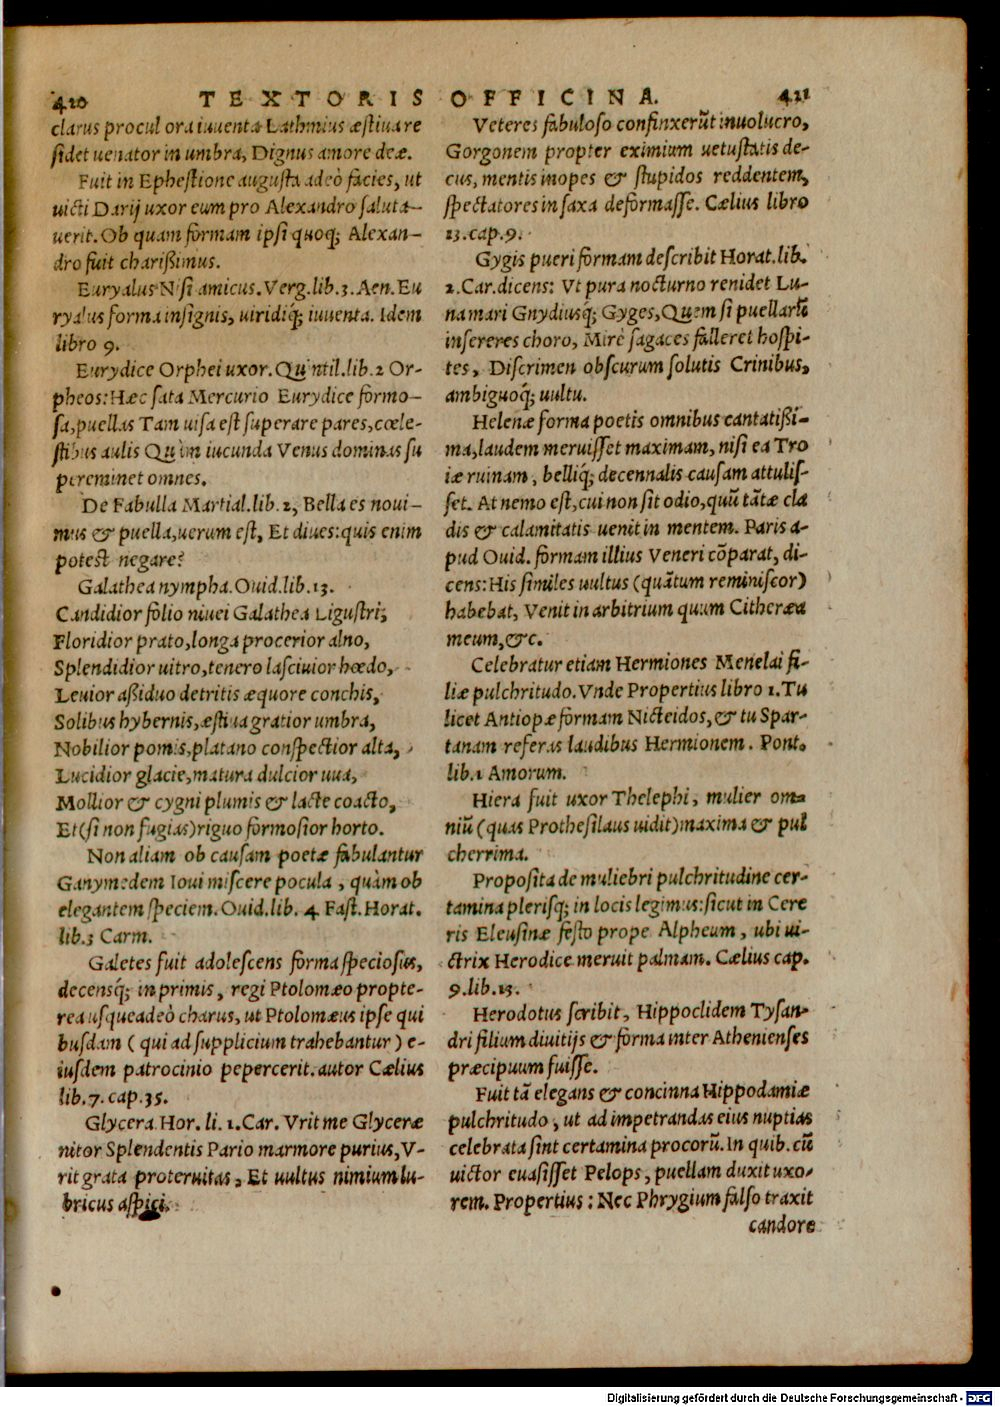 420 TEXTORIS OFFICINA. 421
clarus procul ora iuuenta Lathmius æstiuare
sidet uenator in umbra, Dignus amore deæ.
Fuit in Ephestione augusta adeò facies, ut
uicti Darij uxor eum pro Alexandro saluta-
uerit. Ob quam formam ipsi quoq; Alexan-
dro fuit charißimus.
Euryalus Nisi amicus. Verg. lib. 3. Aen. Eu
ryalus forma insignis, uiridiq́; iuuenta. Idem
libro 9.
Eurydice Orphei uxor. Quintil. lib. 2 Or-
pheos: Hæc sata Mercurio Eurydice formo-
sa, puellas Tam uisa est superare pares, cœle-
stibus aulis Quàm iucunda Venus dominas su
pereminet omnes.
De Fabulla Martial. lib. 2, Bella es noui-
mus & puella, uerum est, Et diues: quis enim
potest negare?
Galathea nympha. Ouid. lib. 13.
Candidior folio niuei Galathea Ligustri,
Floridior prato, longa procerior alno,
Splendidior uitro, tenero lasciuior hœdo,
Leuior aßiduo detritis æquore conchis,
Solibus hybernis, æstiua gratior umbra,
Nobilior pomis, platano conspectior alta,
Lucidior glacie, matura dulcior uua,
Mollior & cygni plumis & lacte coacto,
Et (si non fugias) riguo formosior horto.
Non aliam ob causam poetæ fabulantur
Ganymedem Ioui miscere pocula, quàm ob
elegantem speciem. Ouid. lib. 4 Fast. Horat.
lib. 3 Carm.
Galetes fuit adolescens forma speciosus,
decensq́; inprimis, regi Ptolomæo propte-
rea usqueadeò charus, ut Ptolomæus ipse qui
busdam (qui ad supplicium trahebantur) e-
iusdem patrocinio pepercerit. autor Cælius
lib. 7. cap. 35.
Glycera. Hor. li. 1. Car. Vrit me Glyceræ
nitor Splendentis Pario marmore purius, V-
rit grata proteruitas, Et uultus nimium lu-
bricus aspici.
Veteres fabuloso confinxerũt inuolucro,
Gorgonem propter eximium uetustatis de-
cus, mentis inopes & stupidos reddentem,
spectatores in saxa deformasse. Cælius libro
13. cap. 9.
Gygis pueri formam describit Horat. lib.
2. Car. dicens: Vt pura nocturno renidet Lu-
na mari Gnydiusq́; Gyges, Quem si puellarũ
insereres choro, Mirè sagaces falleret hospi-
tes, Discrimen obscurum solutis Crinibus,
ambiguoq́; uultu.
Helenæ forma poetis omnibus cantatißi-
ma, laudem meruisset maximam, nisi ea Tro
iæ ruinam, belliq́; decennalis causam attulis-
set. At nemo est, cui non sit odio, quũ tãtæ cla
dis & calamitatis uenit in mentem. Paris a-
pud Ouid. formam illius Veneri cõparat, di-
cens: His similes uultus (quãtum reminiscor)
habebat, Venit in arbitrium quum Citheræa
meum, &c.
Celebratur etiam Hermiones Menelai fi-
liæ pulchritudo. Vnde Propertius libro 1. Tu
licet Antiopæ formam Nicteidos, & tu Spar-
tanam referas laudibus Hermionem. Pont.
lib. 1 Amorum.
Hiera fuit uxor Thelephi, mulier om-
niũ (quas Prothesilaus uidit) maxima & pul
cherrima.
Proposita de muliebri pulchritudine cer-
tamina plerisq; in locis legimus: sicut in Cere
ris Eleusinæ festo prope Alpheum, ubi ui-
ctrix Herodice meruit palmam. Cælius cap.
9. lib. 13.
Herodotus scribit, Hippoclidem Tysan-
dri filium diuitijs & forma inter Athenienses
præcipuum fuisse.
Fuit tã elegans & concinna Hippodamiæ
pulchritudo, ut ad impetrandas eius nuptias
celebrata sint certamina procorũ. In quib. cũ
uictor euasisset Pelops, puellam duxit uxo-
rem. Propertius: Nec Phrygium falso traxit
candore
Digitalisierung gefördert durch die Deutsche Forschungsgemeinschaft - DFG